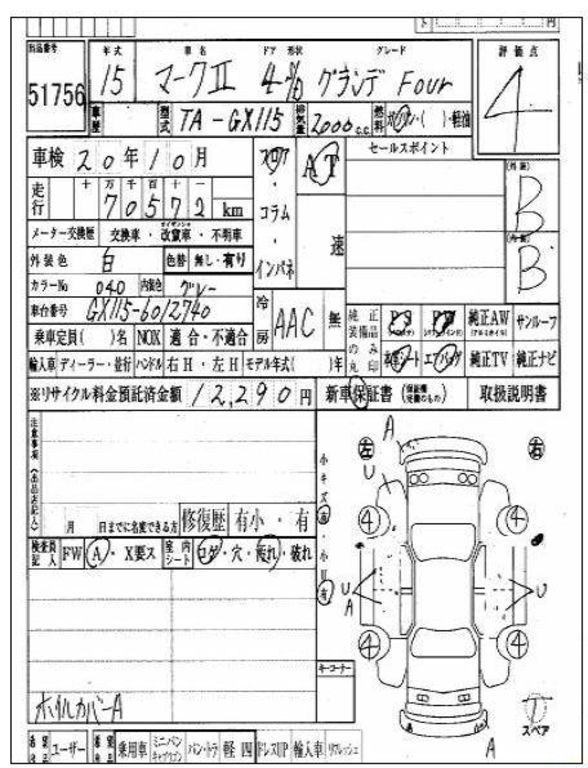 出品番号 年式 車名 ドア 形状 グレード 評価点
51756 15 マークII 4 グランデ Four 4
車歴 型式 TA-GX115 排気量 2000 c.c. 燃料 ガソリン・( )・軽油
車検 20年10月 フロア AT セールスポイント
(外装) B
走行 十 万 千 百 十 一
70572 km コラム
メーター交換歴 交換車・改竄車・不明車 速 (内装) B
外装色 白 色替 無し・有り インパネ
カラーNo. 040 内装色 グレー
車台番号 GX115-6012740 冷房 AAC 無 純正装備品のみ丸印 PS PW 純正AW サンルーフ
乗車定員( )名 NOX 適合・不適合
輸入車 ディーラー・並行 ハンドル 右H・左H モデル年式( )年 革シート エアバッグ 純正TV 純正ナビ
※リサイクル料金預託済金額 12,290円 新車保証書 取扱説明書
注意事項(出品店記入)
A
左 右
U
小キズ 有
月 日までに名変できる方 修復歴 有小・有
4 4
検査員記入 FW A・X要ス 室内シート コゲ・穴・汚れ・破れ 小U 有
U A U
4 4
キーコーナー
ホイルカバーA
T
スペア
A
希望 ユーザー 希望 乗用車 ミニバン キャブワゴン バン・トラ 軽四 ドレスUP 輸入車 リフレッシュ